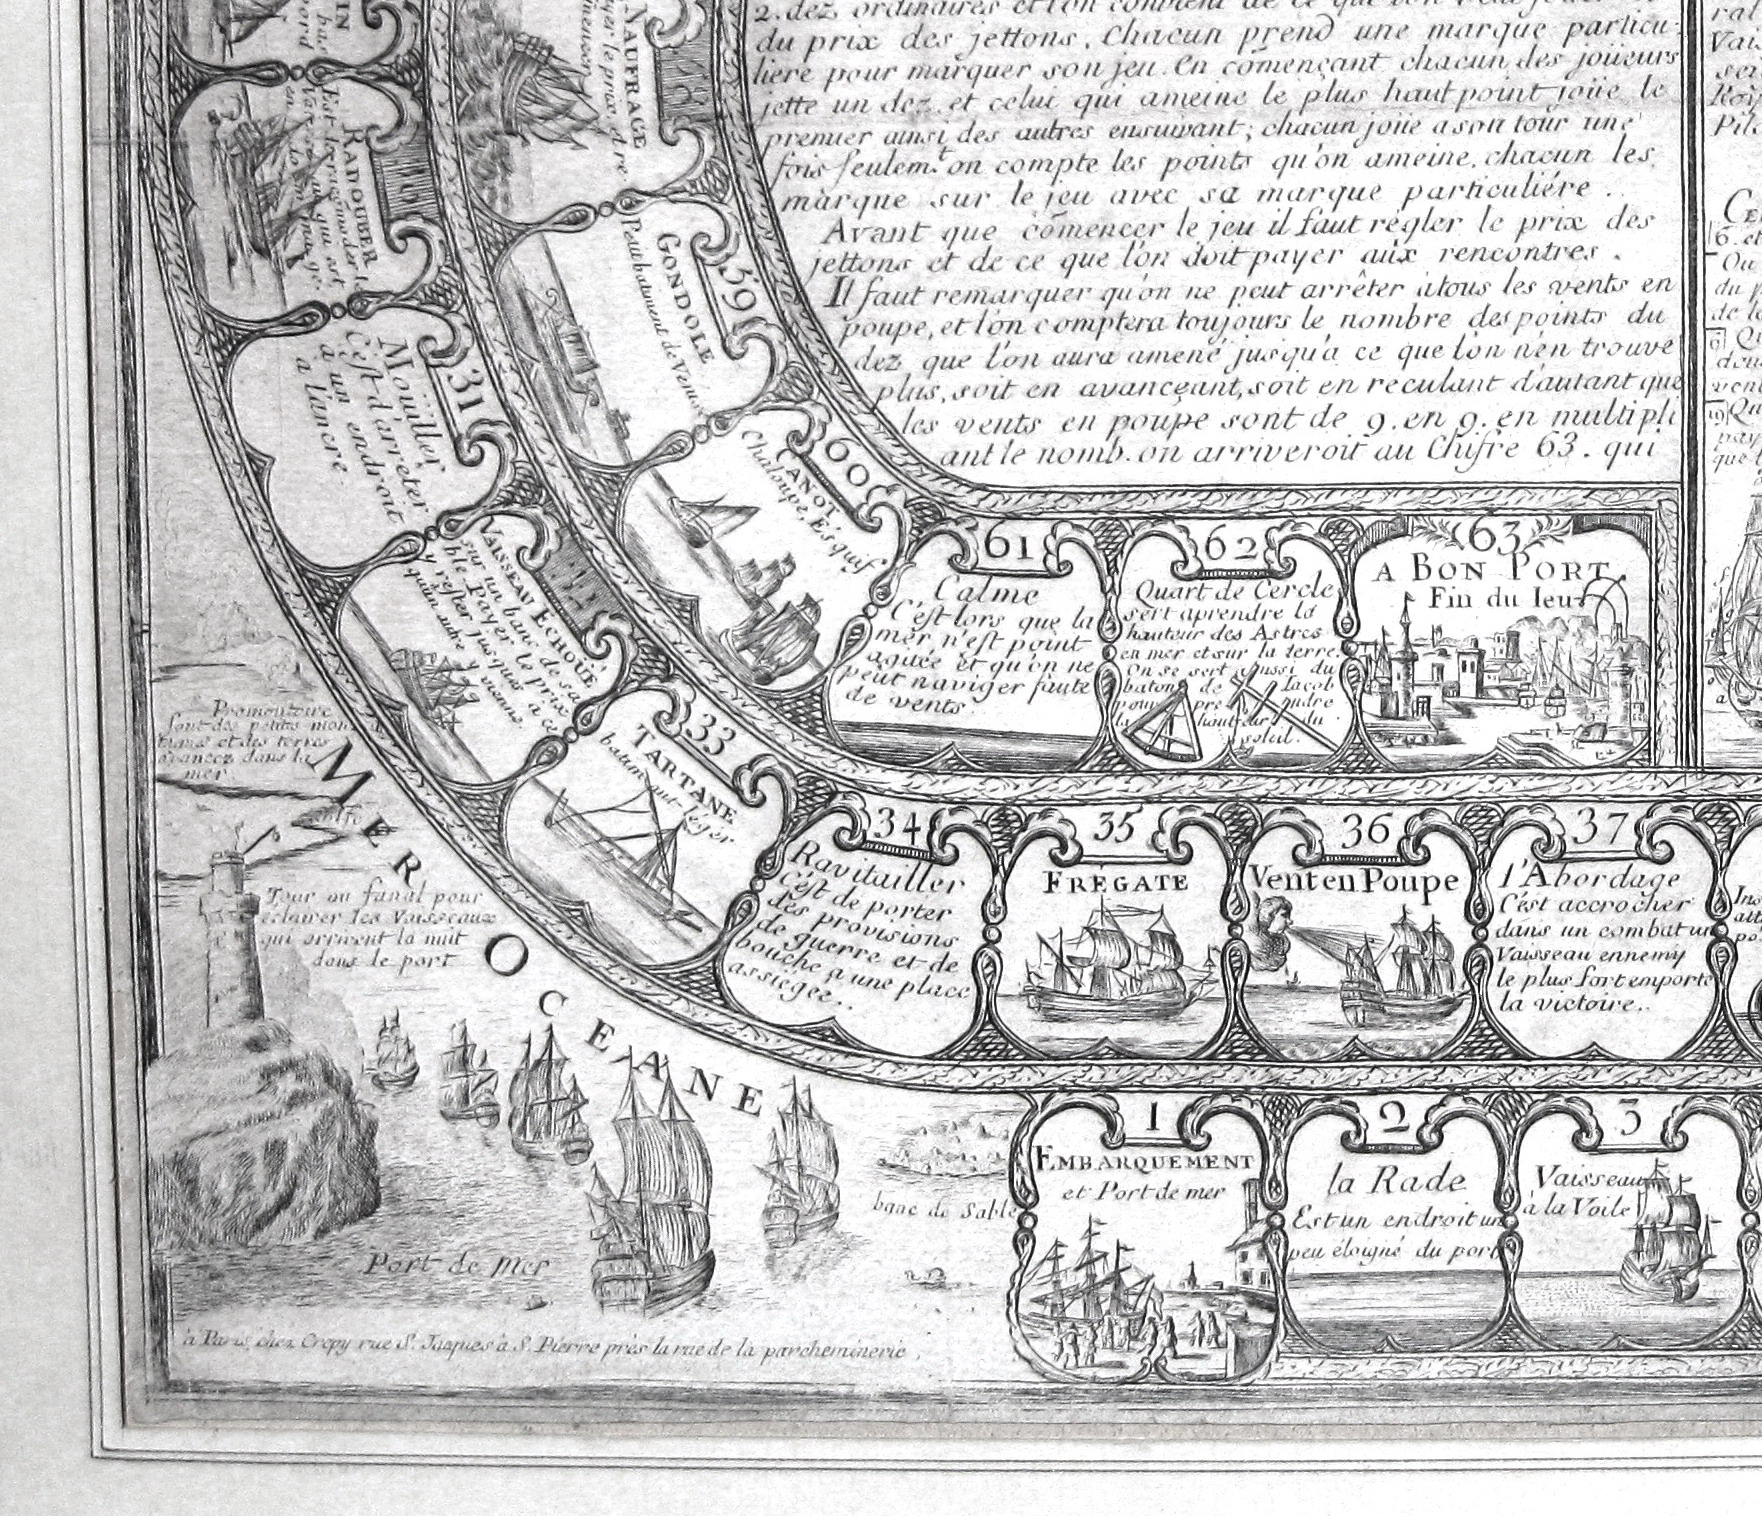 2. dez ordinaires et l'on convient de ce que l'on veut
du prix des jettons. Chacun prend une marque particu:
liere pour marquer son jeu. en començant chacun des joüeurs
jette un dez. et celui qui ameine le plus haut point joüe le
premier ainsi des autres ensuivant; chacun joüe a son tour une
fois seulem.t on compte les points qu'on ameine. chacun les
marque sur le jeu avec sa marque particuliére.
Avant que cōmencer le jeu il faut régler le prix des
jettons et de ce que l'on doit payer aux rencontres.
Il faut remarquer qu'on ne peut arrêter à tous les vents en
poupe, et l'on comptera toujours le nombre des points du
dez que l'on aura amené jusqu'a ce que l'on n'en trouve
plus, soit en avançeant, soit en reculant d'autant que
les vents en poupe sont de 9. en 9. en multipli
ant le nomb. on arriveroit au Chifre 63. qui
NAUFRAGE
payer le prix et re
RADOUBER
31
Moüiller
C'est d'arrêter
a un endroit
a l'ancre.
VAISSEAU ECHOÜÉ
sur un banc de sa
ble Payer le prix
y rester jusques a ce
qu'un autre y vienne.
33
TARTANE
batiment leger
34
Ravitailler
C'est de porter
des provisions
de guerre et de
bouche a une place
assiégée.
35
FRÉGATE
36
Vent en Poupe
37
l'Abordage
C'est accrocher
dans un combat un
Vaisseau ennemy
le plus fort emporte
la victoire.
59
GONDOLE
Petit batiment de Venise
60
CANOT,
Chaloupe, Esquif
61
Calme
C'est lors que la
mer n'est point
agitée et qu'on ne
peut naviger faute
de vents.
62
Quart de Cercle
sert aprendre la
hauteur des Astres
en mer et sur la terre.
On se sert aussi du
baton de Iacob
pour prendre
la hauteur du
soleil.
63
A BON PORT
Fin du Ieu
1
EMBARQUEMENT
et Port de mer
2
la Rade
Est un endroit un
peu éloigné du port
3
Vaisseau
à la Voile
MER OCEANE
Promontoire
sont des petits mon
tagnes et des terres
avancez dans la
mer
Tour ou fanal pour
éclairer les Vaisseaux
qui arrivent la nuit
dans le port
banc de Sable
Port de mer
à Paris chez Crepy rue S.t Jaques à S. Pierre près la rue de la parcheminerie.